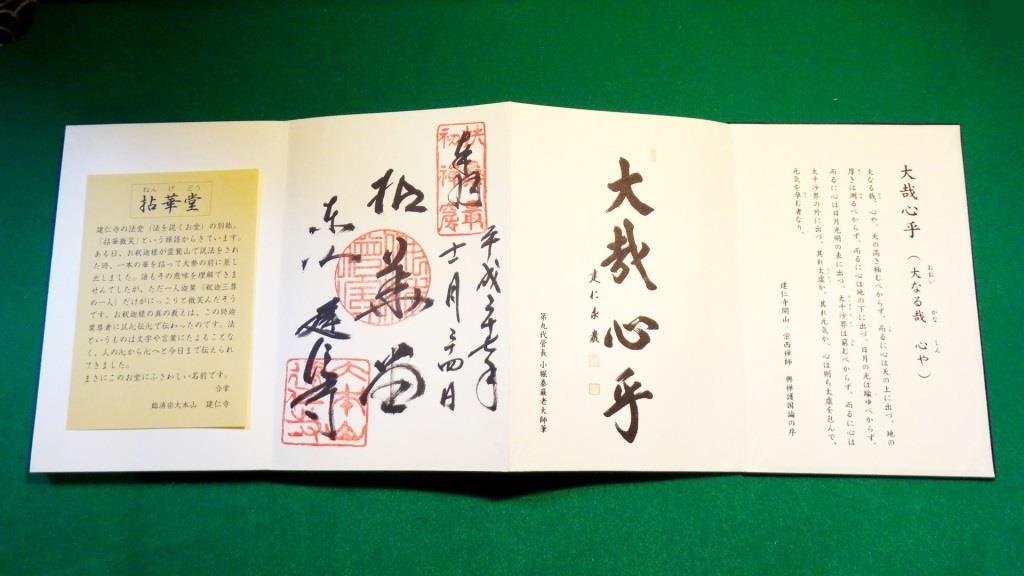 大哉心乎
(大なる哉 心や)
おおい かな しん
大なる哉、心や、天の高き極むべからず、而るに心は天の上に出づ、地の
厚きは測るべからず、而るに心は地の下に出づ、日月の光は踰ゆべからず、
而るに心は日月光明の表に出づ、大千沙界は窮むべからず、而るに心は
大千沙界の外に出づ、其れ太虚か、其れ元気か、心は則ち太虚を包んで、
元気を孕む者なり、
建仁寺開山 栄西禅師 興禅護国論の序
大哉心乎
建仁泰巌
第九代管長 小堀泰巌老大師筆
平成二十七年
十一月二十四日
奉拝
扶桑最初禅窟
拈華堂
東山 建仁寺
ねんげどう
拈華堂
建仁寺の法堂(法を説くお堂)の別称。
「拈華微笑」という禅語からきています。
ある日、お釈迦様が霊鷲山で説法をされ
た時、一本の華を拈って大衆の前に差し
出しました。誰もその意味を理解できま
せんでしたが、ただ一人迦葉(釈迦三尊
の一人)だけがにっこりと微笑んだそう
です。お釈迦様の真の教えは、この時迦
葉尊者に以心伝心で伝わったのです。法
というものは文字や言葉にたよることな
く、人の心から心へと今日まで伝えられ
てきました。
まさにこのお堂にふさわしい名前です。
合掌
臨済宗大本山 建仁寺